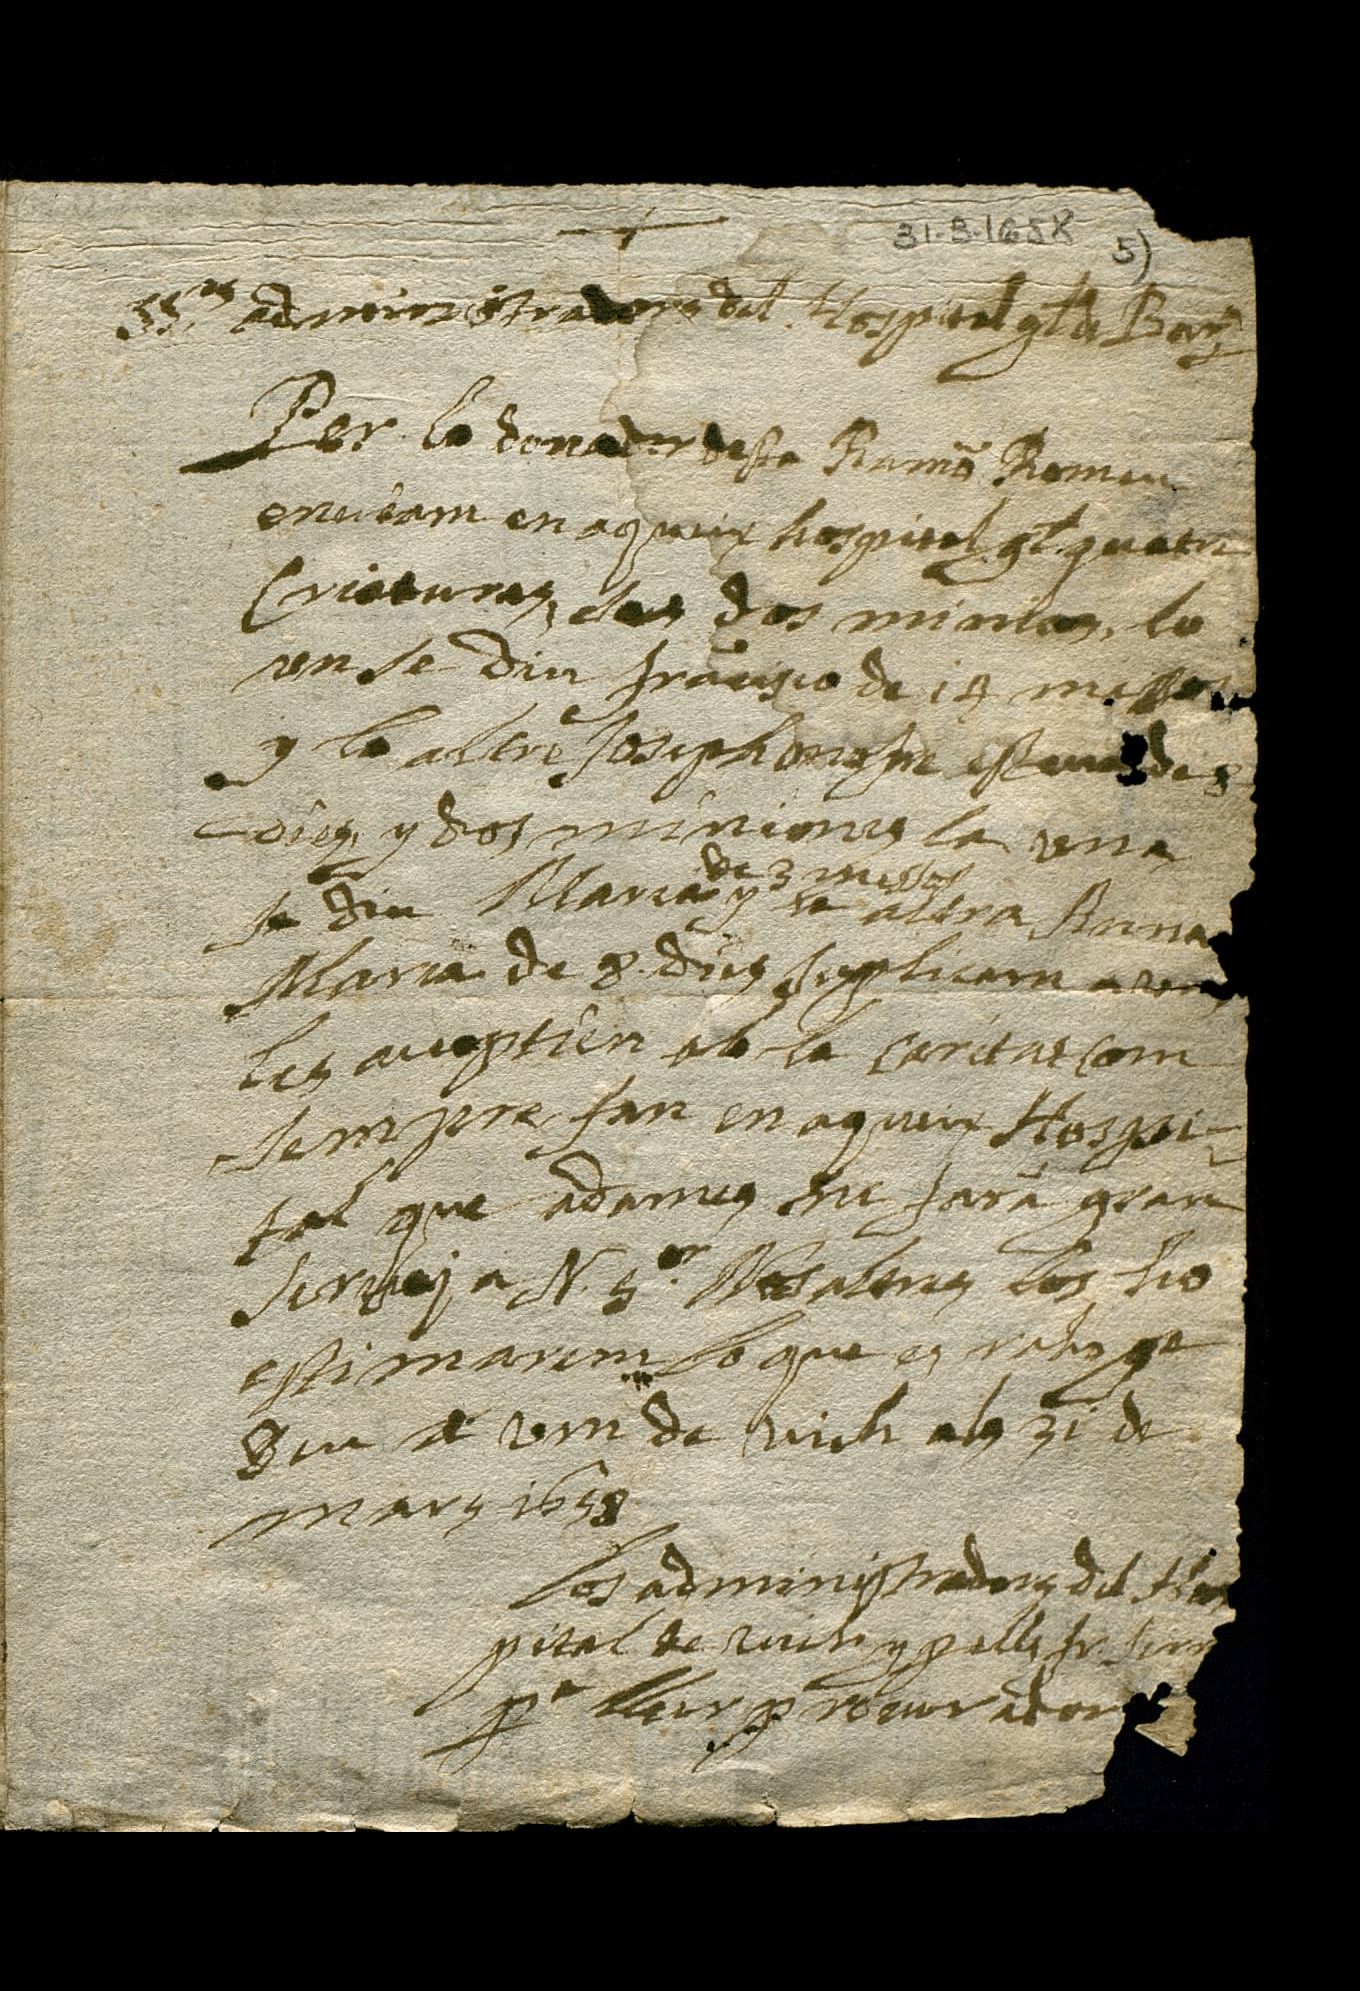 31.3.1658 5)
SS.rs administradors del Hospital gl de Bar.
Per lo donador desta Ramõ Romeu
enviam en aqueix hospital gl. quatre
Criatures, dos minions, lo
un se diu de 18 messos
y lo altre Joseph de 8
dies, y dos miniones la una
de 3 messos
se diu Maria y la altra Anna
Maria de 8. dies suplicam a vm
les acceptien ab la caritat com
sempre fan en aqueix Hospi-
tal que ademes ne farà gran
servey a N. S.or Nosaltres los ho
estimarem lo que es rahó ge
Deu a vm de Vich als 31 de
mars 1658
Los administradors del Hos
pital de Vich y per ells
p.e llur procurador